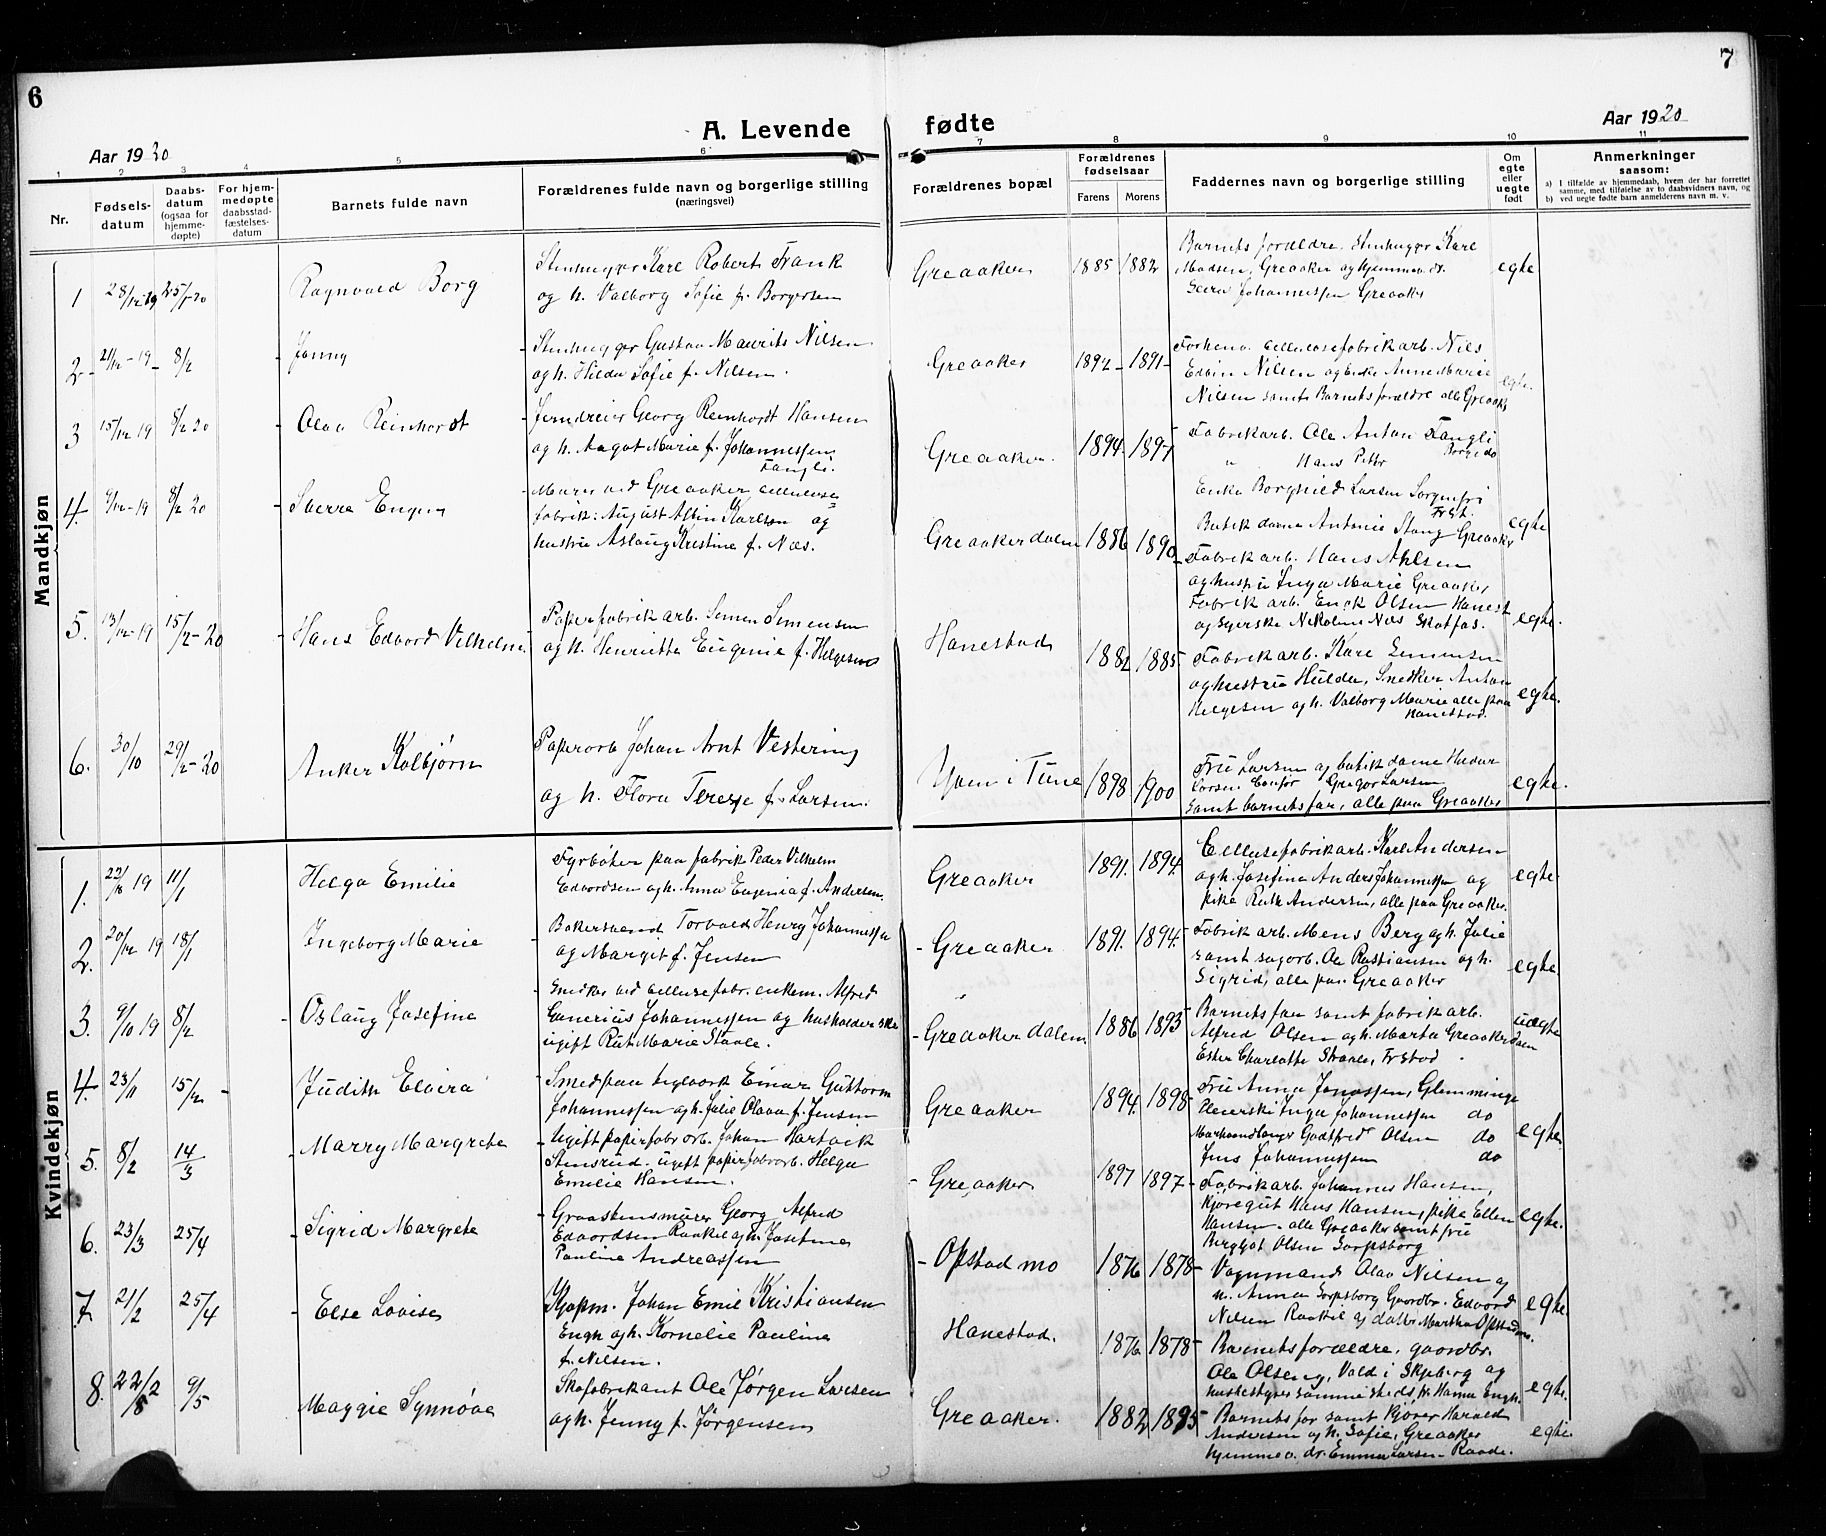 6
7
A. Levende fødte
Aar 1920
Aar 1920
1 2 3 4 5 6 7 8 9 10 11
Nr.
Fødsels-
datum
Daabs-
datum
(ogsaa for
hjemme-
døpte)
For hjem-
medøpte
daabsstad-
fæstelses-
datum
Barnets fulde navn
Forældrenes fulde navn og borgerlige stilling
(næringsvei)
Forældrenes bopæl
Forældrenes
fødselsaar
Farens Morens
Faddernes navn og borgerlige stilling
Om
egte
eller
uegte
født
Anmerkninger
saasom:
a) I tilfælde av hjemmedaab, hvem der har forrettet
samme, med tilføielse av to daabsvidners navn, og
b) ved uegte fødte barn anmelderens navn m. v.
Mandkjøn
1 28/12 19 25/1-20
Ragnvald Borg
Stenhugger Karl Robert Frank
og h. Valborg Sofie f. Borgersen
Greaaker 1885 1882
Barnets forældre, Stenhugger Karl
Madsen, Greaaker og hjemmev. dr.
Johannessen Greaaker
egte
2 21/12-19 8/2
Jonny
Stenhugger Gustav Maurits Nilsen
og h. Hilda Sofie f. Nilsen.
Greaaker 1892 1891
Forhenv. cellulosefabrikarb. Nils
Edvin Nilsen og enke Anne Marie
Nilsen samt Barnets forældre alle Greaaker
egte.
3 15/12 19 8/2 20
Olav Reinhardt
Jerndreier Georg Reinhardt Hansen
og h. Aagot Marie f. Johannessen
Tangli.
Greaaker. 1894 1897
Fabrikarb. Ole Anton Tangli
" Hans Petter Borge do
Enke Borghild Larsen Sorgenfri
Fr.st.
Butikdame Antonie Stang Greaaker
egte
4. 9/12-19 8/2 20
Sverre Eugen
Murer ved Greaaker cellulose
fabrik: August Alfin Karlsen og
hustru Aslaug Kristine f. Næs.
Greaakerdalen 1886 1890
Fabrikarb. Hans Ahlsen
og hustru Inga Marie Greaaker,
Fabrikarb. Enok Olsen Hanest
og syerske Nikoline Næs Skotfos.
egte.
5. 13/12-19 15/2-20
Hans Edvard Vilhelm
Paperfabrikarb. Simen Simensen
og h. Henriette Eugenie f. Helgesen
Hanestad 1882 1885
Fabrikarb. Karl Simensen
og hustru Hulda, Snedker Anton
Helgesen og h. Valborg Marie alle paa
Hanestad.
egte.
6. 30/10 29/2-20
Anker Kolbjørn
Paperarb Johan Arnt Vestering
og h. Flora Terese f. Larsen.
Moen i Tune 1898 1900
Fru Larsen og butikdame Huldur
Larsen Gregor Larsen
samt barnets far, alle paa Greaaker
egte.
Kvindekjøn
1. 22/8 19 11/1
Helga Emilie
Fyrbøter paa fabrik Peder Vilhelm
Edvardsen og h. Anna Eugenia f. Andersen.
Greaaker 1891. 1894.
Cellulosefabrikarb. Karl Andersen
og h. Josefina Anders Johannessen og
pike Ruth Andersen, alle paa Greaaker.
egte
2. 20/12 19 18/1
Ingeborg Marie
Bakersvend Torvald Henry Johannessen
og Margit f. Jensen
Greaaker 1891. 1894.
Fabrikarb. Mons Berg og h. Julie
samt sagarb. Ole Kristiansen og h.
Sigrid, alle paa Greaaker
egte.
3. 9/10 19 8/2
Aslaug Josefine
Snedker ved cellulosefabr. enkem. Alfred
Gunerius Johannessen og husholderske
ugift Rut Marie Staale.
Greaakerdalen 1886 1893
Barnets far samt fabrikarb.
Alfred Olsen og h. Marta Greaakerdalen
Ester Charlotte Straale, Fr.stad
uægte
4. 23/11 15/2
Judith Elvira
Smed paa teglverk Einar Guttorm
Johannessen og h. Julie Olava f. Jensen
Greaaker 1894. 1898
Fru Anna Jonassen, Glemminge
Inga Johannessen do
Godtfred Olsen do
Jens Johannessen do
egte
5. 8/2 14/3
Marry Margrete
Ugift papirfabrarb. Johan Hartvik
Stensrud. ugift papirfabrarb. Helga
Emilie Hansen.
Greaaker 1897 1897
Fabrikarb. Johannes Hansen,
Kjøregut Hans Hansen, pike Ellen
Hansen. alle Greaaker samt fru
Bergljot Olsen Sarpsborg
egte.
6. 23/3 25/4
Sigrid Margrete
Graastensmurer Georg Alfred
Edvardsen Raakil og h. Josefine
Pauline Andreassen
Opstad mo 1876 1878
Vognmand Olav Nilsen og
h. Anna Sarpsborg Gaardbr. Edvard
Nilsen Raakil og datter Martha Opstadmo.
egte
7. 21/2 25/4
Else Lovise
Kjøpm. Johan Emil Kristiansen
Engh og h. Kornelie Pauline
f. Nilsen.
Hanestad. 1876 1878
Barnets forældre, gaardbr.
Ole Olsen, Vold i Skjeberg og
husbestyrer sammesteds fr. Hanna Engh.
egte.
8. 22/2 9/5
Maggie Synnøve
Skofabrikant Ole Jørgen Larsen
og h. Jenny f. Jørgensen
Greaaker. 1882 1885
Barnets far samt kjører Harald
Andersen og h. Sofie, Greaaker
hjemmev. dr. Emma Larsen Raade.
egte.